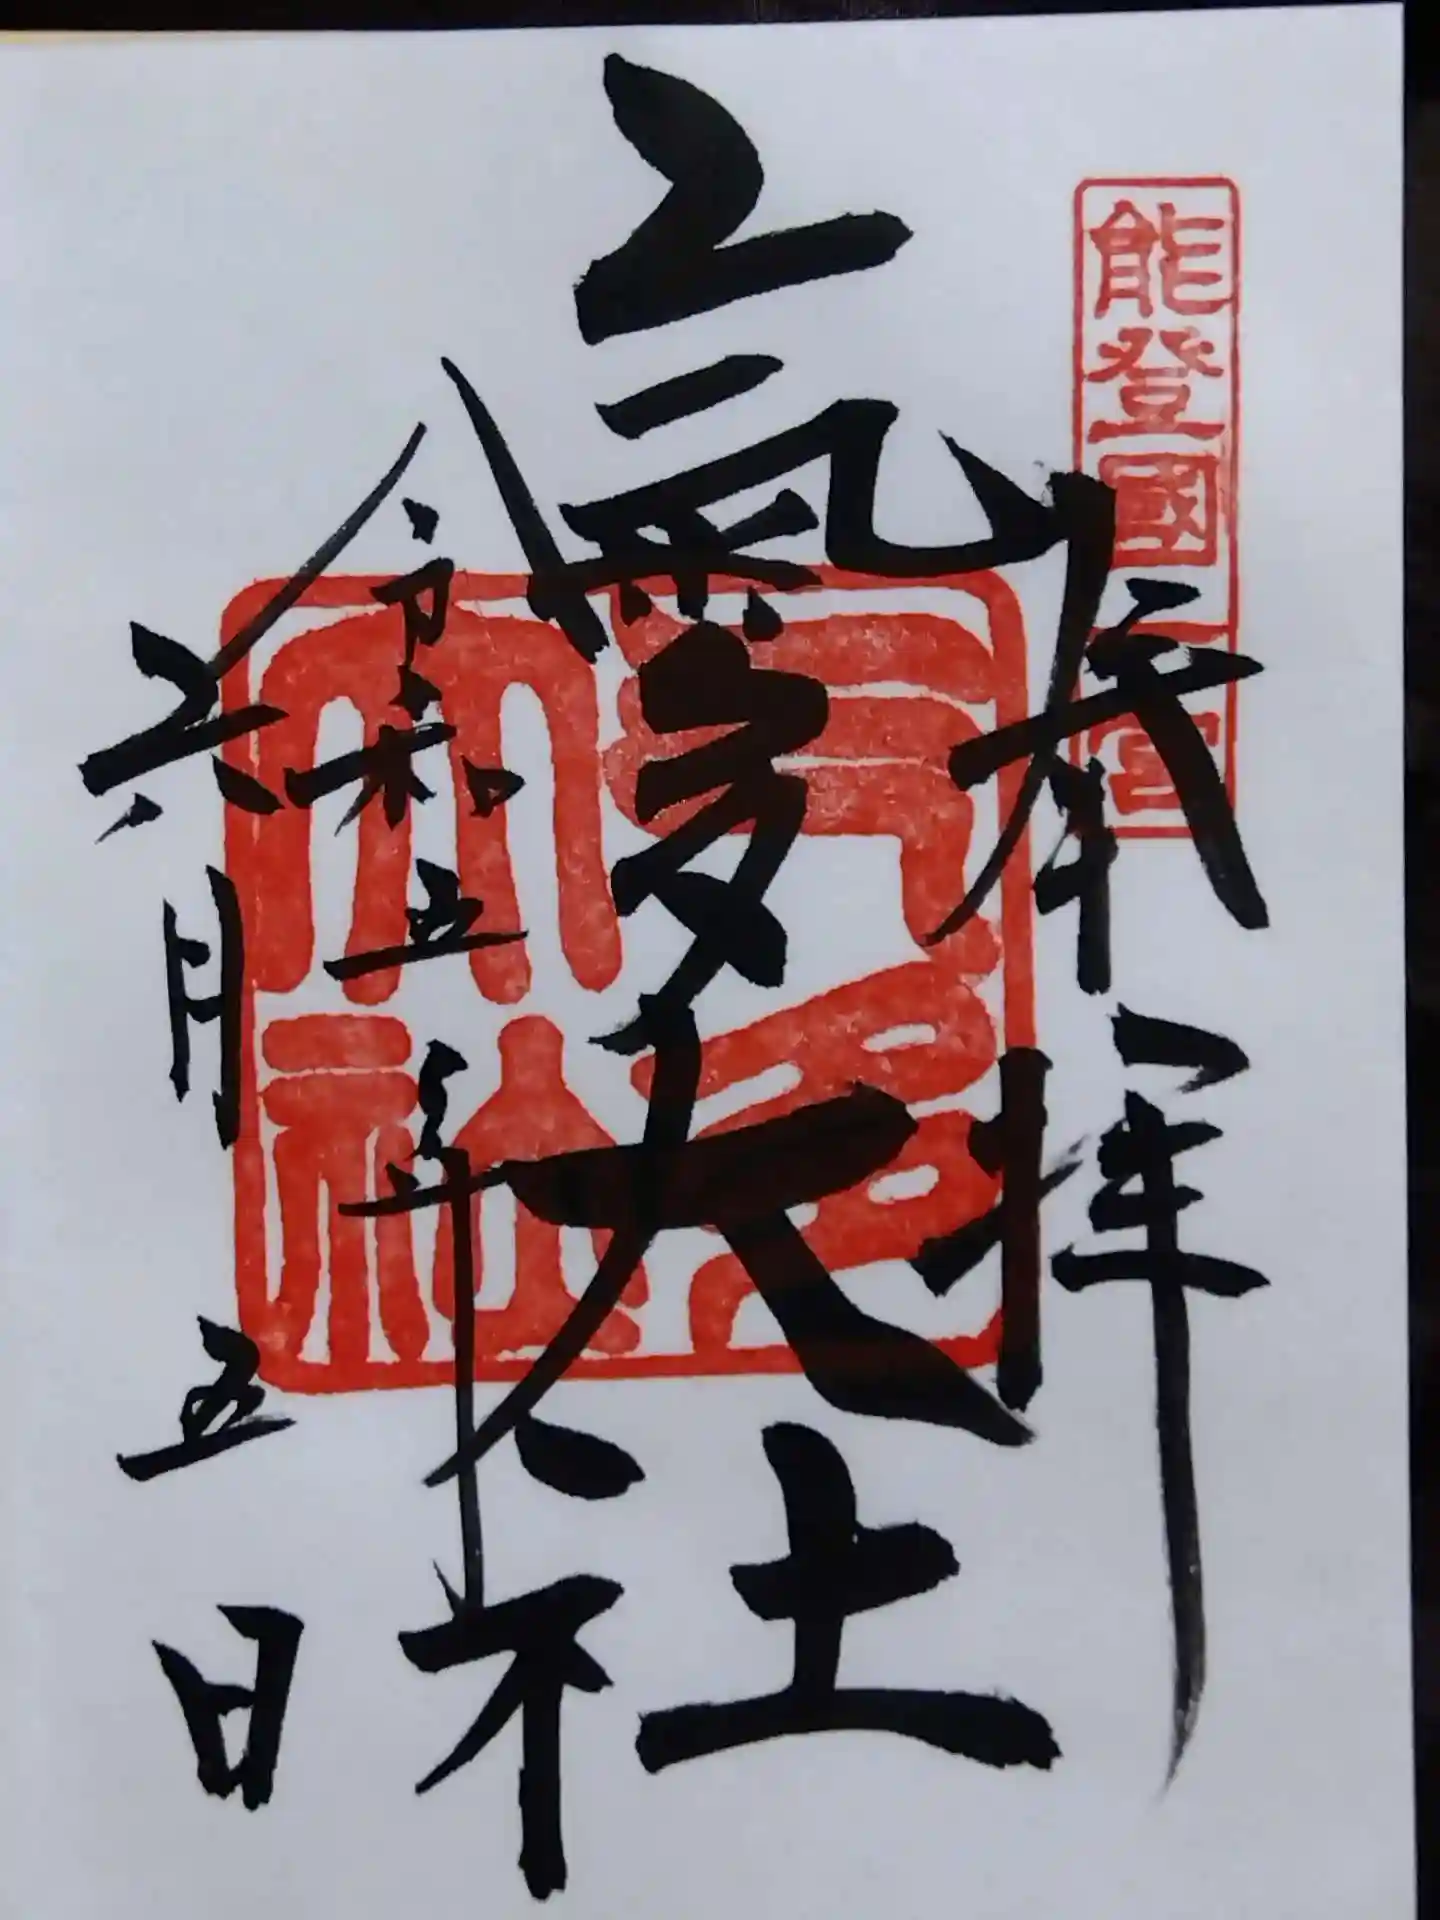 能登國一宮
奉拝
氣多大社
令和五年
六月五日
气多大社